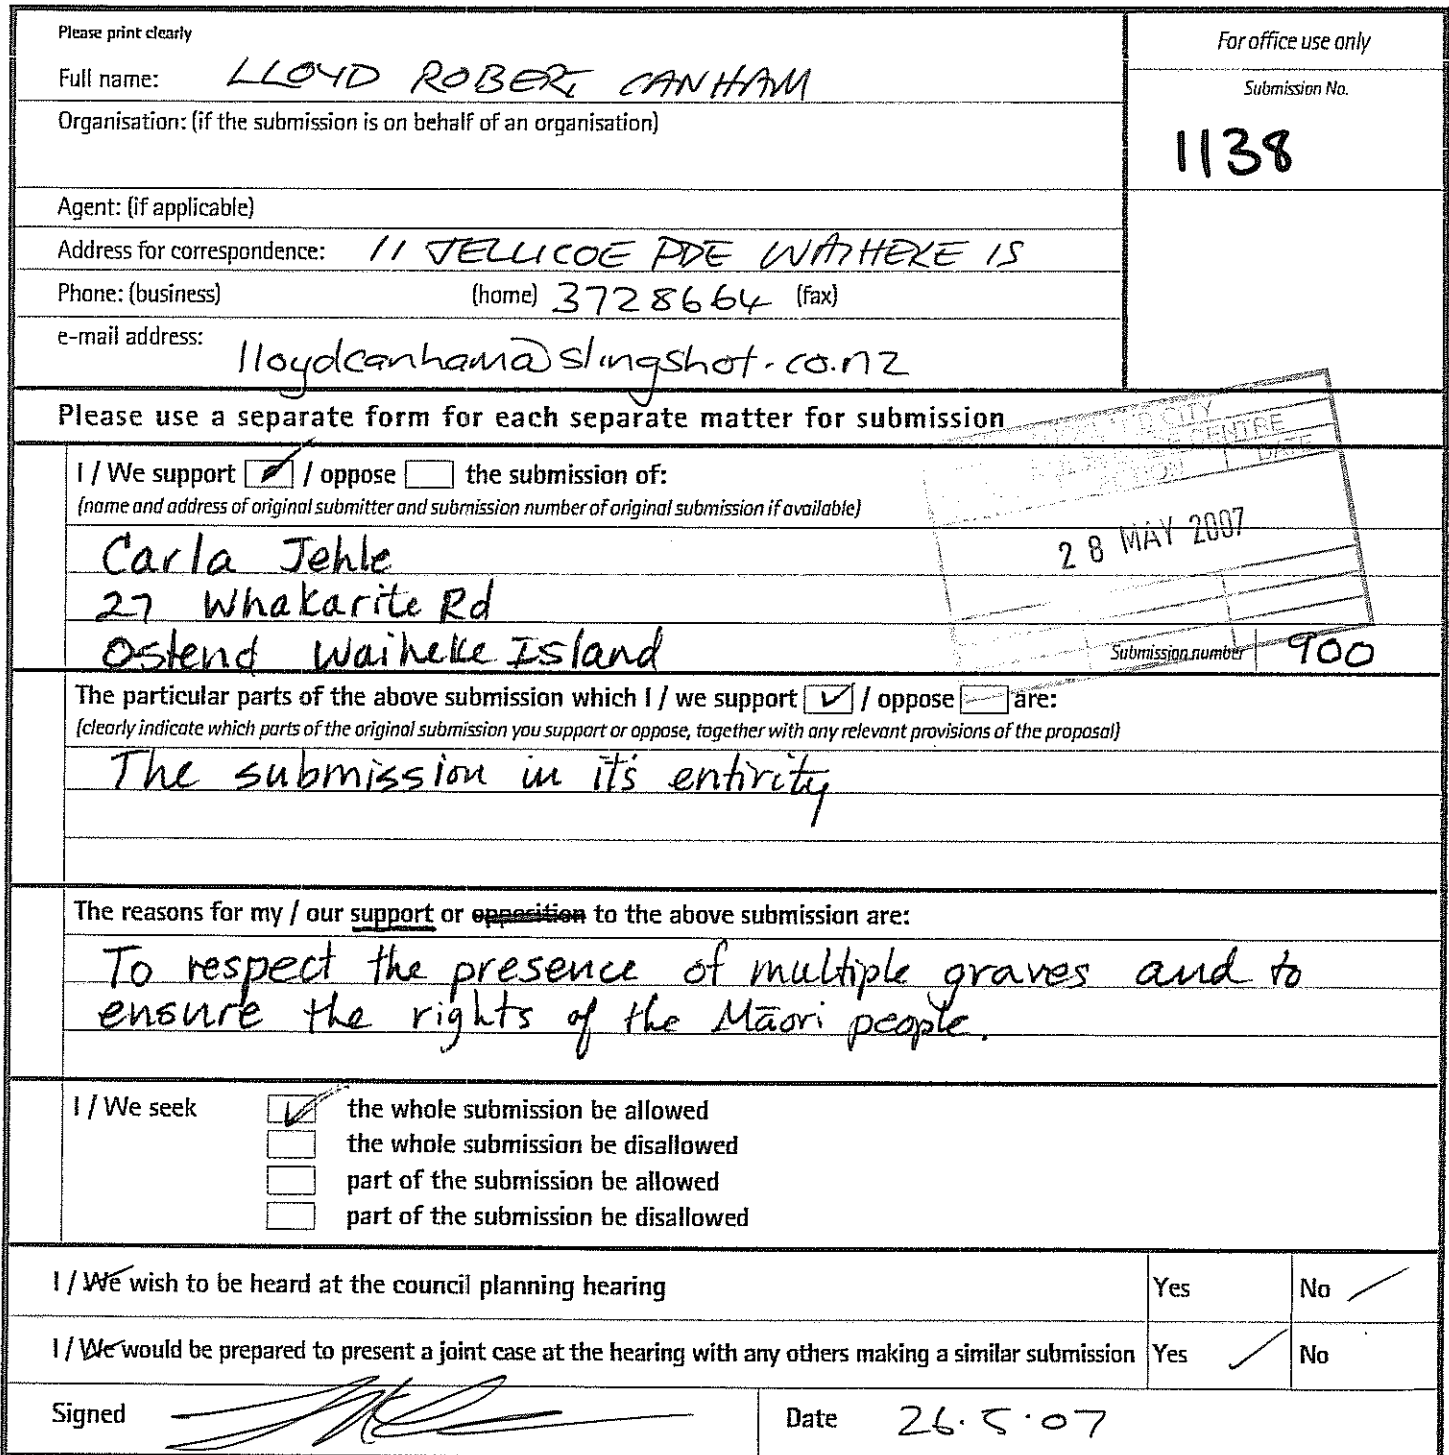 Please print clearly
For office use only
Full name: LLOYD ROBERT CANHAM
Submission No.
Organisation: (if the submission is on behalf of an organisation)
1138
Agent: (if applicable)
Address for correspondence: 11 JELLICOE PDE WAIHEKE IS
Phone: (business) (home) 3728664 (fax)
e-mail address: lloydcanham@slingshot.co.nz
Please use a separate form for each separate matter for submission
CITY
CENTRE
DATE
I / We support / oppose the submission of:
(name and address of original submitter and submission number of original submission if available)
28 MAY 2007
Carla Jehle
27 Whakarite Rd
Ostend Waiheke Island
Submission number 900
The particular parts of the above submission which I / we support / oppose are:
(clearly indicate which parts of the original submission you support or oppose, together with any relevant provisions of the proposal)
The submission in it's entirity
The reasons for my / our support or opposition to the above submission are:
To respect the presence of multiple graves and to
ensure the rights of the Māori people.
I / We seek the whole submission be allowed
the whole submission be disallowed
part of the submission be allowed
part of the submission be disallowed
I / We wish to be heard at the council planning hearing Yes No
I / We would be prepared to present a joint case at the hearing with any others making a similar submission Yes No
Signed Date 26.5.07